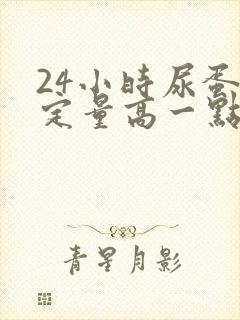 24小時尿蛋
定量高一點
青星月影